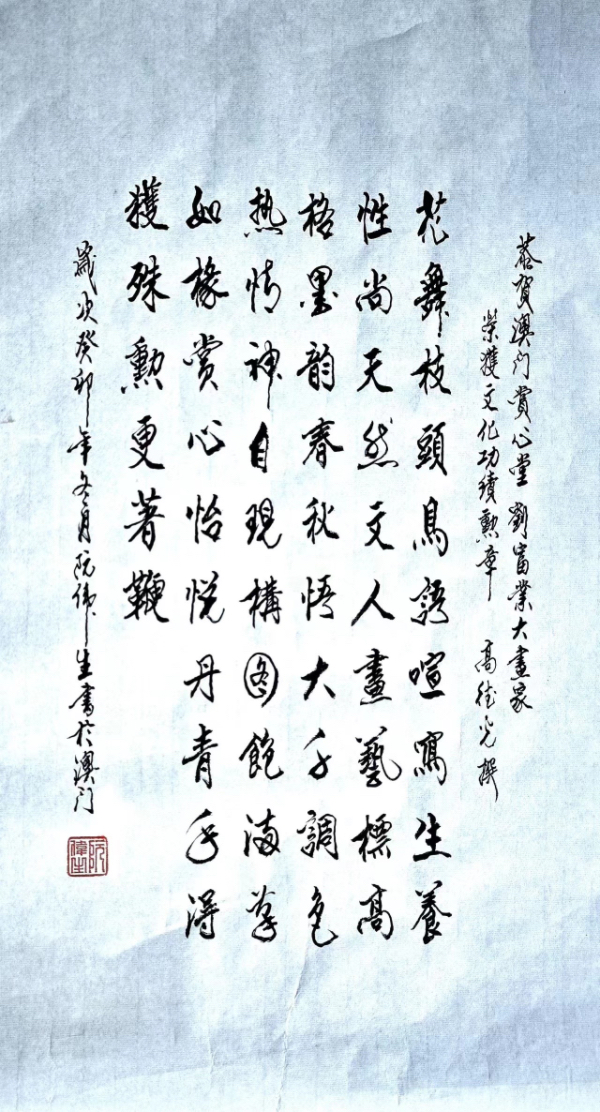 恭賀澳门賞心堂劉富業大畫家
榮獲文化功績勳章 高 撰
花舞枝頭鳥語喧寫生養
性尚天然文人畫藝標高
格墨韵春秋悟大千調色
热情神自現構图飽满筆
如椽賞心怡悦丹青手得
獲殊勳更著鞭
歲次癸卯年冬月阮偉生書於澳门
阮偉生